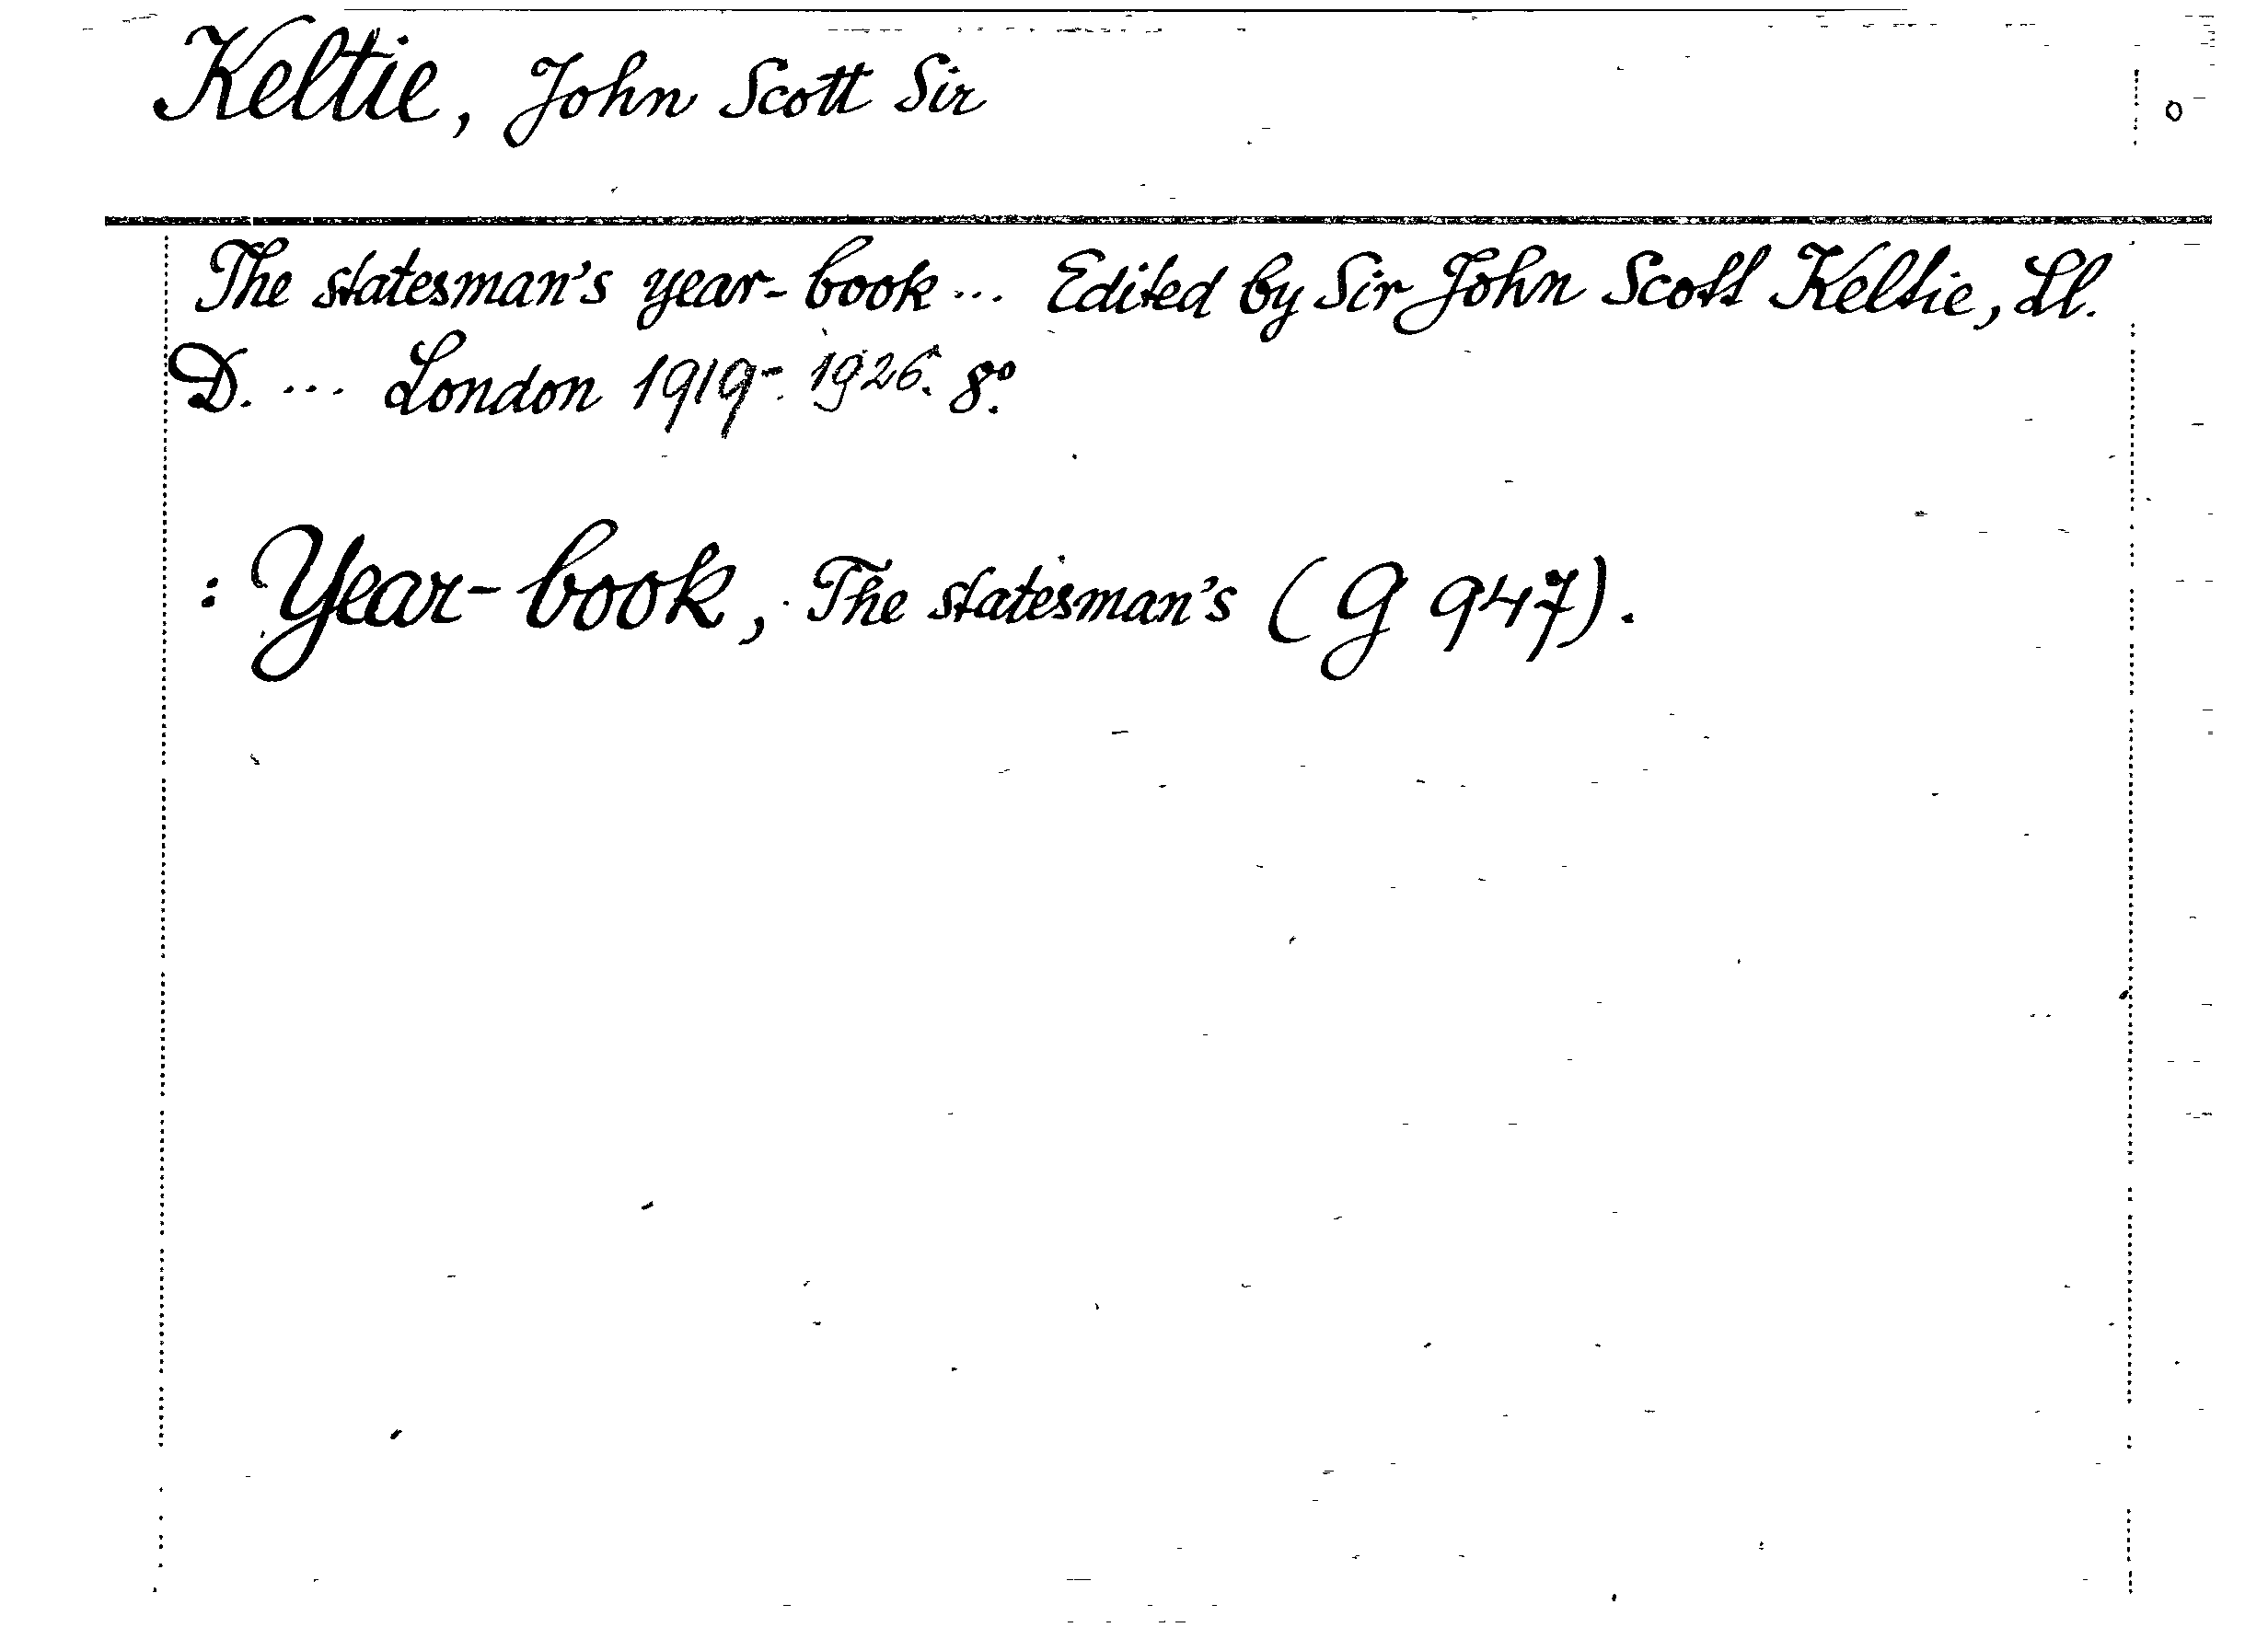 Keltie, John Scott Sir
The statesman's year-book ... Edited by Sir John Scott Keltie, Ll.
D. ... London 1919-1926. 8°.
: Year-book, The statesman's (G 947).